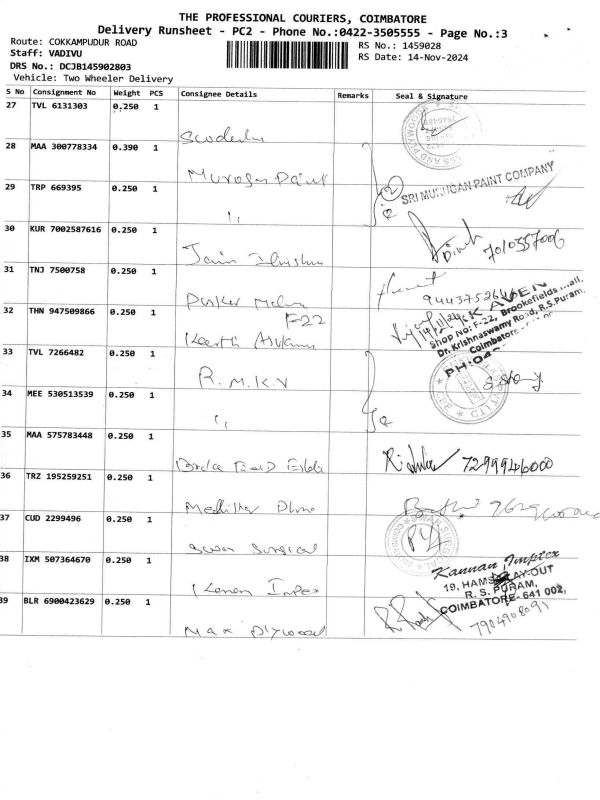 THE PROFESSIONAL COURIERS, COIMBATORE
Delivery Runsheet - PC2 - Phone No.:0422-3505555 - Page No.:3
Route: COKKAMPUDUR ROAD
RS No.: 1459028
Staff: VADIVU
RS Date: 14-Nov-2024
DRS No.: DCJB145902803
Vehicle: Two Wheeler Delivery
S No Consignment No Weight PCS Consignee Details Remarks Seal & Signature
27 TVL 6131303 0.250 1
28 MAA 300778334 0.390 1
Murogan Paint
29 TRP 669395 0.250 1
SRI MURUGAN PAINT COMPANY
"
30 KUR 7002587616 0.250 1
Dinh 7010557006
Jain
31 TNJ 7500758 0.250 1
9443752646
32 THN 947509866 0.250 1
F-22
KAVEN
Shop No: F-22, Brookefields Mall,
Dr. Krishnaswamy Road, R.S.Puram,
Coimbatore
PH-04
33 TVL 7266482 0.250 1
R.M.K.V
34 MEE 530513539 0.250 1
"
35 MAA 575783448 0.250 1
7299946000
36 TRZ 195259251 0.250 1
37 CUD 2299496 0.250 1
Swan Surgical
38 IXM 507364670 0.250 1
Kannan Impex
19, HAMSARAY-OUT
R. S. PURAM,
COIMBATORE- 641 002,
Kanan Impex
39 BLR 6900423629 0.250 1
7904908091
Max Plywood